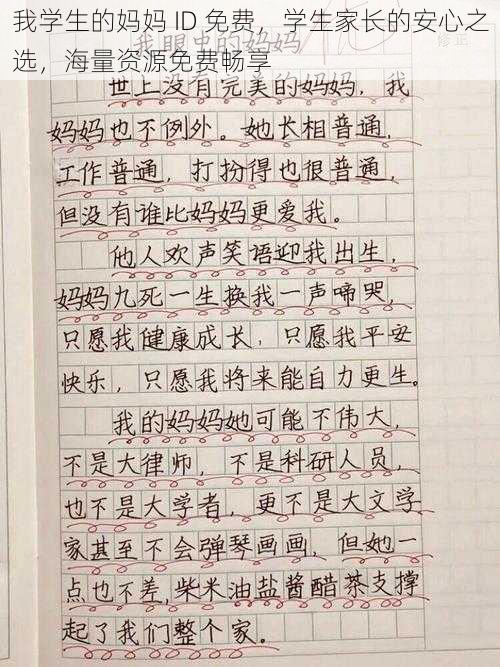 我学生的妈妈 ID 免费，学生家长的安心之
选，海量资源免费畅享
我眼中的妈妈
修正
世上没有完美的妈妈，我
妈妈也不例外。她长相普通，
工作普通，打扮得也很普通，
但没有谁比妈妈更爱我。
他人欢声笑语迎我出生，
妈妈九死一生换我一声啼哭，
只愿我健康成长，只愿我平安
快乐，只愿我将来能自力更生。
我的妈妈她可能不伟大，
不是大律师，不是科研人员，
也不是大学者，更不是大文学
家甚至不会弹琴画画，但她一
点也不差，柴米油盐酱醋茶支撑
起了我们整个家。